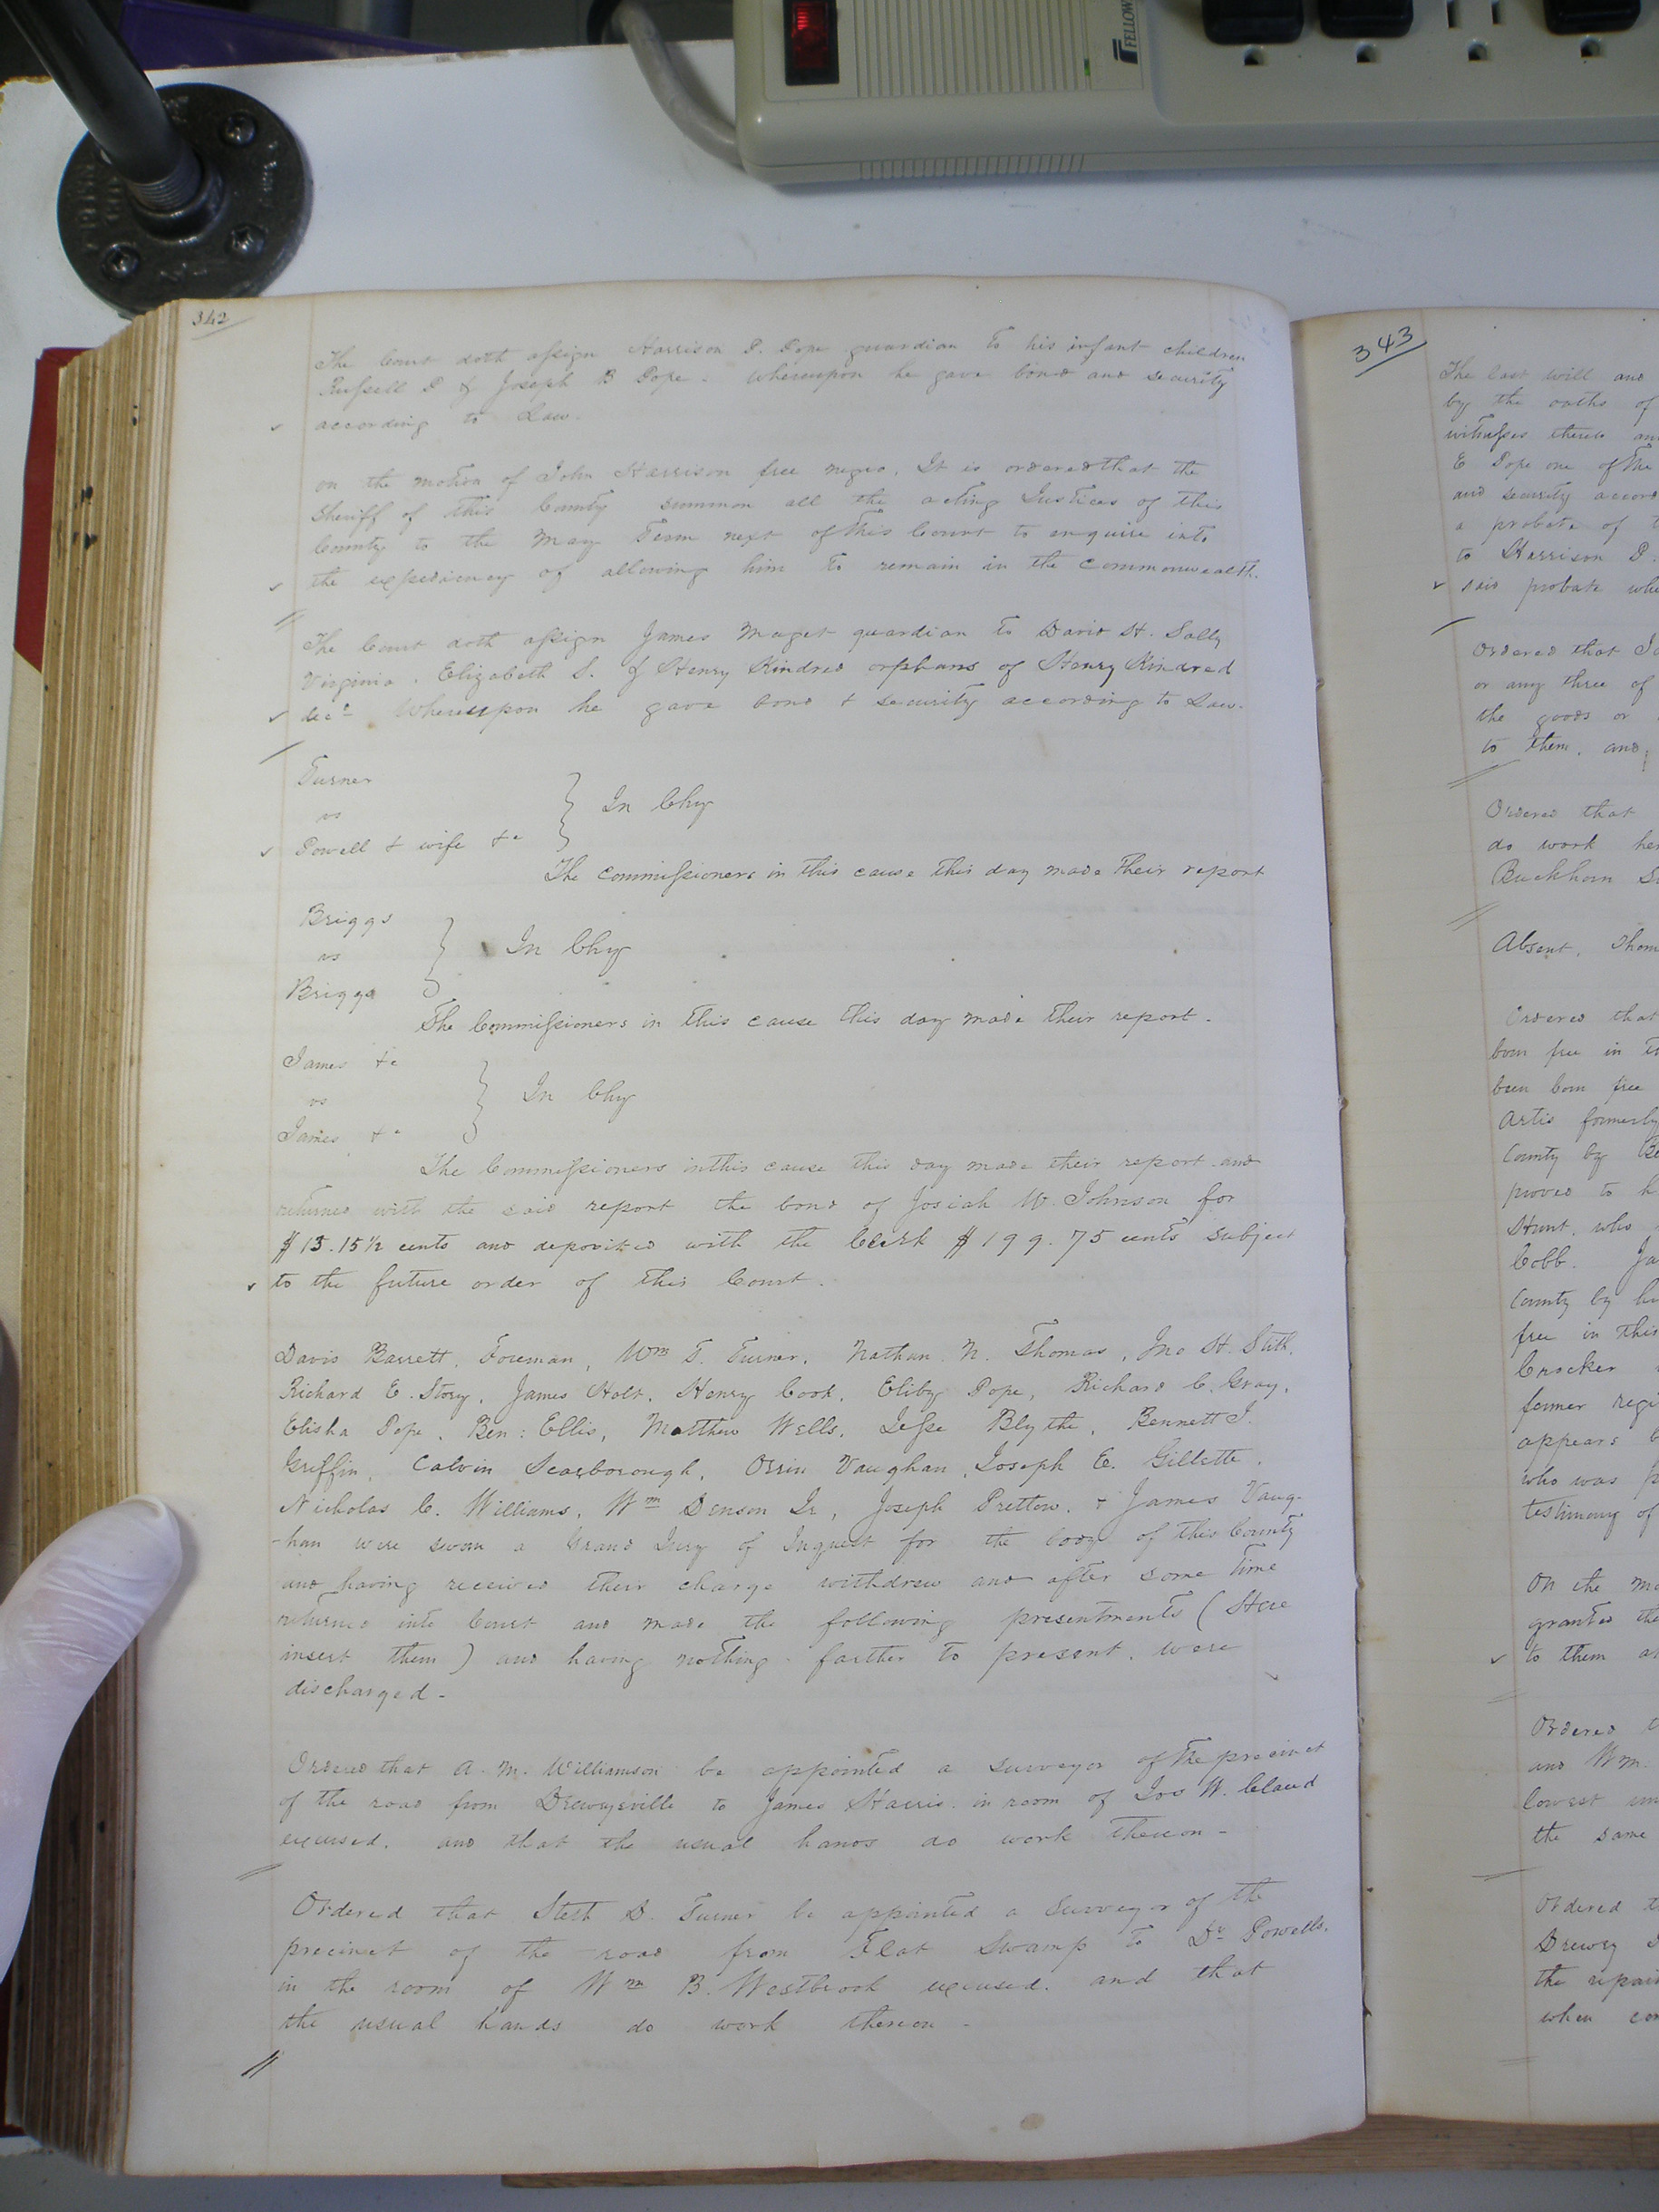 FELLOW
342
The Court doth assign Harrison P. Pope guardian to his infant children
Russell P & Joseph B Pope. Whereupon he gave bond and security
according to Law.
on the motion of John Harrison free negro. It is ordered that the
Sheriff of this County summon all the acting Justices of this
County to the May Term next of this Court to enquire into
the expediency of allowing him to remain in the commonwealth.
The Court doth assign James Maget guardian to David H. Sally
Virginia, Elizabeth S. & Henry Kindred orphans of Henry Kindred
decd. Whereupon he gave bond & security according to Law.
Turner
vs
Powell & wife &c
In Chy
The commissioners in this cause this day made their report
Briggs
vs
Briggs
In Chy
The Commissioners in this cause this day made their report.
James &c
vs
James &c
In Chy
The Commissioners in this cause this day made their report and
returned with the said report the bond of Josiah W. Johnson for
$13.15 1/2 cents and deposited with the Clerk $199.75 cents subject
to the future order of this Court.
Davis Barrett, Foreman, Wm T. Turner, Nathan N. Thomas, Jno H. Stith,
Richard E. Story, James Holt, Henry Cook, Eliby Pope, Richard C. Gray,
Elisha Pope, Ben: Ellis, Matthew Wells, Jesse Blythe, Bennett J.
Griffin, Calvin Scarborough, Orrin Vaughan, Joseph E. Gillette,
Nicholas C. Williams, Wm Denson Jr, Joseph Pretlow, & James Vaug-
-han were sworn a Grand Jury of Inquest for the body of this County
and having received their charge withdrew and after some time
returned into Court and made the following presentments (Here
insert them) and having nothing farther to present, were
discharged -
Ordered that A. M. Williamson be appointed a surveyor of the precinct
of the road from Drewrysville to James Harris. in room of Jos W. Claud
excused. and that the usual hands do work thereon -
Ordered that Steth D. Turner be appointed a Surveyor of the
precinct of the road from Flat Swamp to Dr Powells.
in the room of Wm B. Westbrook excused. and that
the usual hands do work thereon -
343
The last will and
by the oaths of
witnesses thereto an
E Pope one of the
and security accord
a probate of t
to Harrison P.
said probate whe
Ordered that Jo
or any three of
the goods or
to them, and
Ordered that
do work her
Buckhorn S
Absent, Thom
Ordered that
born free in
been born free
Artis formerly
County by
proved to h
Hunt, who
Cobb. Ja
County by h
free in this
Crocker
former regi
appears b
who was p
testimony of
On the mo
granted the
to them a
Ordered t
and Wm.
lowest un
the same
Ordered t
Drewry
the repai
when com